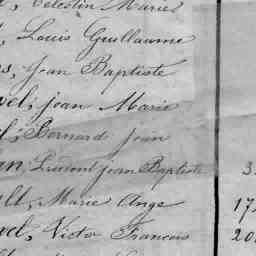 t, Célestin Marie
t, Louis Guillaume
es, Jean Baptiste
vel, jean Marie
l, Bernard Jean
an, jean Baptiste 3
lt, Marie Ange 17
vel, Victor Francois 20